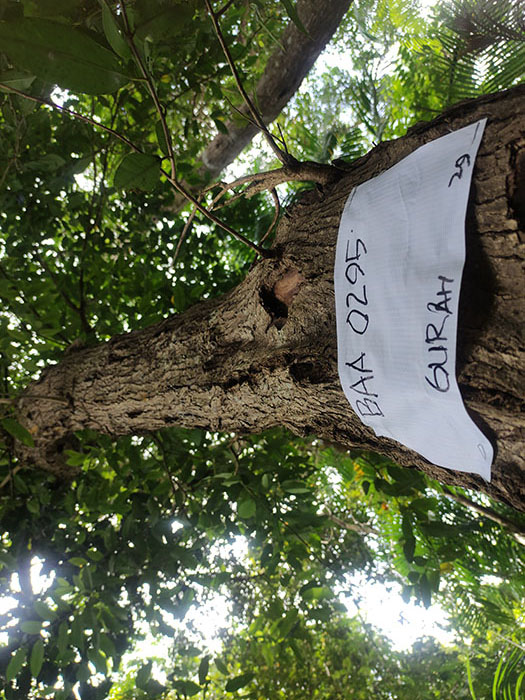 BAA 0295
GURAH
29